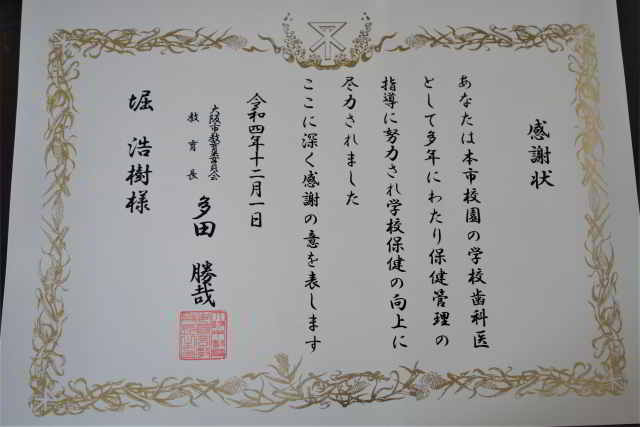 感謝状
あなたは本市校園の学校歯科医
として多年にわたり保健管理の
指導に努力され学校保健の向上に
尽力されました
ここに深く感謝の意を表します
令和四年十二月一日
大阪市教育委員会
教育長 多田 勝哉
堀 浩樹様